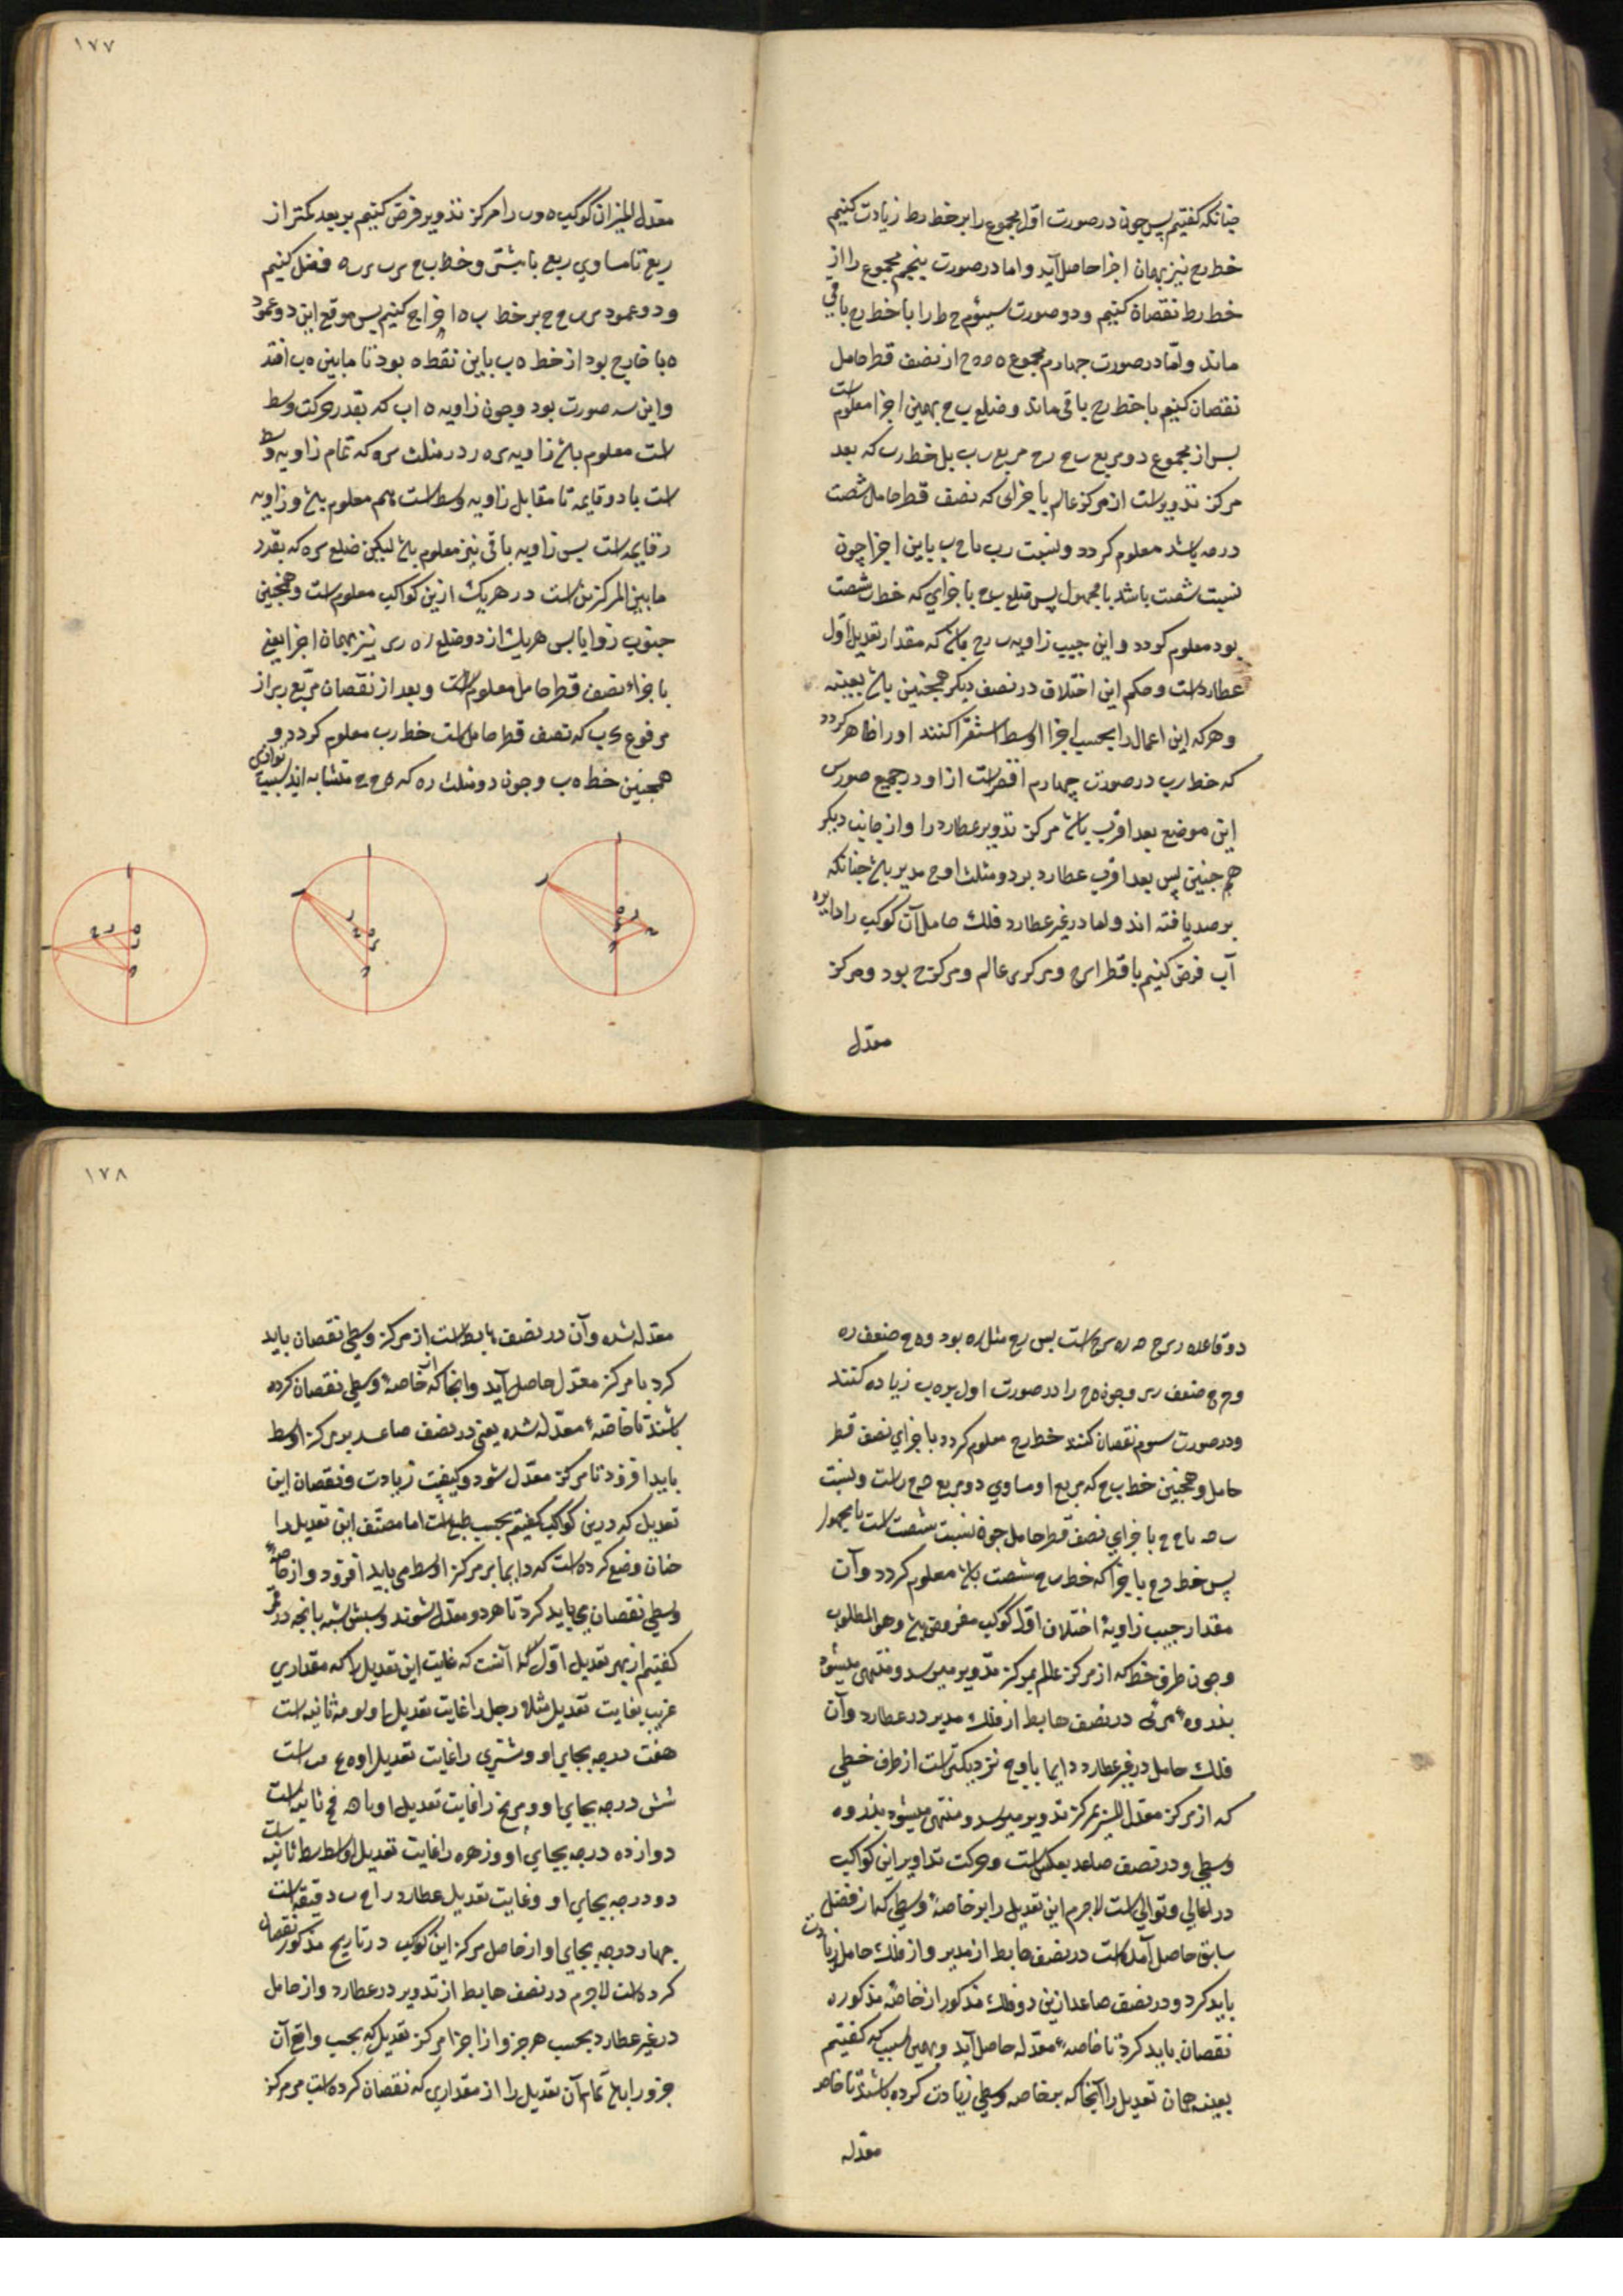 چنانکه گفتیم پس چون در صورت اول مجموع را بر خط رط زیادت کنیم
خط رح نیز بهمان اجزا حاصل آید و اما در صورت پنجم مجموع را از
خط رط نقصان کنیم و در صورت سیوم ح ط را با خط رح باقی
ماند و اما در صورت چهارم مجموع از نصف قطر حامل
نقصان کنیم با خط رح باقی ماند و ضلع ب ح بهمین اجزا معلوم است
پس از مجموع دو مربع رح مربع رب بل خط رب که بعد
مرکز تدویر است از مرکز عالم باجزای که نصف قطر حامل شصت
درجه باشد معلوم کردد و نسبت رب با ح ب باین اجزا چون
نسبت شصت باشد با مجهول پس ضلع ب ح باجزای که خط رب شصت
بود معلوم کردد و این جیب زاویه ب رح باشد که مقدار تعدیل اول
عطارد است و حکم این اختلاف در نصف دیکر همچنین باشد بعینه
و هر که این اعمال را بحسب اجزا اوسط استقرا کنند او را ظاهر کردد
که خط رب در صورت چهارم اقصر است از او در جمیع صور پس
این موضع بعد اقرب باشد مرکز تدویر عطارد را و از جانب دیکر
هم چنین پس بعد اقرب عطارد بر دو مثلث اوج مدیر باشد چنانکه
برصد یافته اند و اما در غیر عطارد فلک حامل آن کوکب را دایره
آب فرض کنیم با قطر و مرکز عالم و مرکز ح بود و مرکز
معدل
١٧٧
معدل المیزان کوکب ه و ب را مرکز تدویر فرض کنیم بر بعد کمتر از
ربع تا مساوی ربع یا بیشتر و خط ب ح فصل کنیم
و دو عمود بر خط ب ه اخراج کنیم پس موقع این دو عمود
ه یا خارج بود از خط ه ب یا بین نقطه ه بود تا ما بین ه ب افتد
و این سه صورت بود و چون زاویه ه اب که بقدر حرکت وسط
است معلوم باشد زاویه در مثلث که تمام زاویه وسط
است با دو قایمه تا مقابل زاویه وسط است هم معلوم باشد و زاویه
ر قایمه است پس زاویه باقی نیز معلوم باشد لیکن ضلع که بقدر
ما بین المرکزین است در هر یک ازین کواکب معلوم است و همچنین
جیوب زوایا پس هر یک از دو ضلع نیز بهمان اجزا یعنی
باجزاء نصف قطر حامل معلوم است و بعد از نقصان مربع از
مرفوع ب که نصف قطر حامل است خط رب معلوم کردد و
همچنین خط ه ب و چون دو مثلث متشابه اند بسبب توازی
دو قاعده است پس رح مثل ره بود و ه ح ضعف ره
و ح ضعف و چون ه ح را در صورت اول بر ه ب زیاده کنند
و در صورت سوم نقصان کنند خط رح معلوم کردد باجزای نصف قطر
حامل و همچنین خط ب ح که مربع او مساوی دو مربع است و نسبت
باجزای نصف قطر حامل چون نسبت شصت است با مجهول
پس خط باجزا که خط شصت باشد معلوم کردد و آن
مقدار جیب زاویه اختلاف اول کوکب مفروض باشد و هو المطلوب
و چون طرف خط که از مرکز عالم بمرکز تدویر میرسد و منتهی میشود
بذروه مرئی در نصف هابط از فلک مدیر در عطارد و آن
فلک حامل در غیر عطارد دایما باوج نزدیکتر است از طرف خطی
که از مرکز معدل المسیر بمرکز تدویر میرسد و منتهی میشود بذروه
وسطی و در نصف صاعد بعکس است و حرکت تداویر این کواکب
در اعالی و توالی است لاجرم این تعدیل را بر خاصه وسطی که از فصل
سابق حاصل آمده است در نصف هابط از مدیر و از فلک حامل زیادت
باید کرد و در نصف صاعد ازین دو فلک مذکور از خاصه مذکوره
نقصان باید کرد تا خاصه معدله حاصل آید و بهمین سبب که گفتیم
بعینه همان تعدیل را آنجا که بر خاصه وسطی زیادت کرده باشند تا خاصه
معدله
١٧٨
معدله شده و آن در نصف هابط است از مرکز وسطی نقصان باید
کرد تا مرکز معدل حاصل آید و آنجا که از خاصه وسطی نقصان کرده
باشند تا خاصه معدله شده یعنی در نصف صاعد بر مرکز اوسط
باید افزود تا مرکز معدل شود و کیفیت زیادت و نقصان این
تعدیل که درین کواکب گفتیم بحسب طبع است اما مصنف این تعدیل را
چنان وضع کرده است که دایما بر مرکز اوسط می باید افزود و از خاصه
وسطی نقصان می باید کرد تا هر دو معدل شوند و سببش شبه بآنچه در قمر
گفتیم از بهر تعدیل اول آنست که غایت این تعدیل را که مقداری
قریب بغایت تعدیل مثلا زحل را غایت تعدیل ثانیه است
هفت درجه بجای او و مشتری را غایت تعدیل است
شش درجه بجای او و مریخ را غایت تعدیل ثانیه است
دوازده درجه بجای او و زهره را غایت تعدیل ثانیه است
دو درجه بجای او و غایت تعدیل عطارد را دقیقه است
چهار درجه بجای او از حاصل مرکز این کوکب در تاریخ مذکور نقصان
کرده است لاجرم در نصف هابط از تدویر در عطارد و از حامل
در غیر عطارد بحسب هر جزو از اجزا مرکز تعدیل که بحسب واقع آن
جزو را باشد تمام آن تعدیل را از مقداری که نقصان کرده است بر مرکز